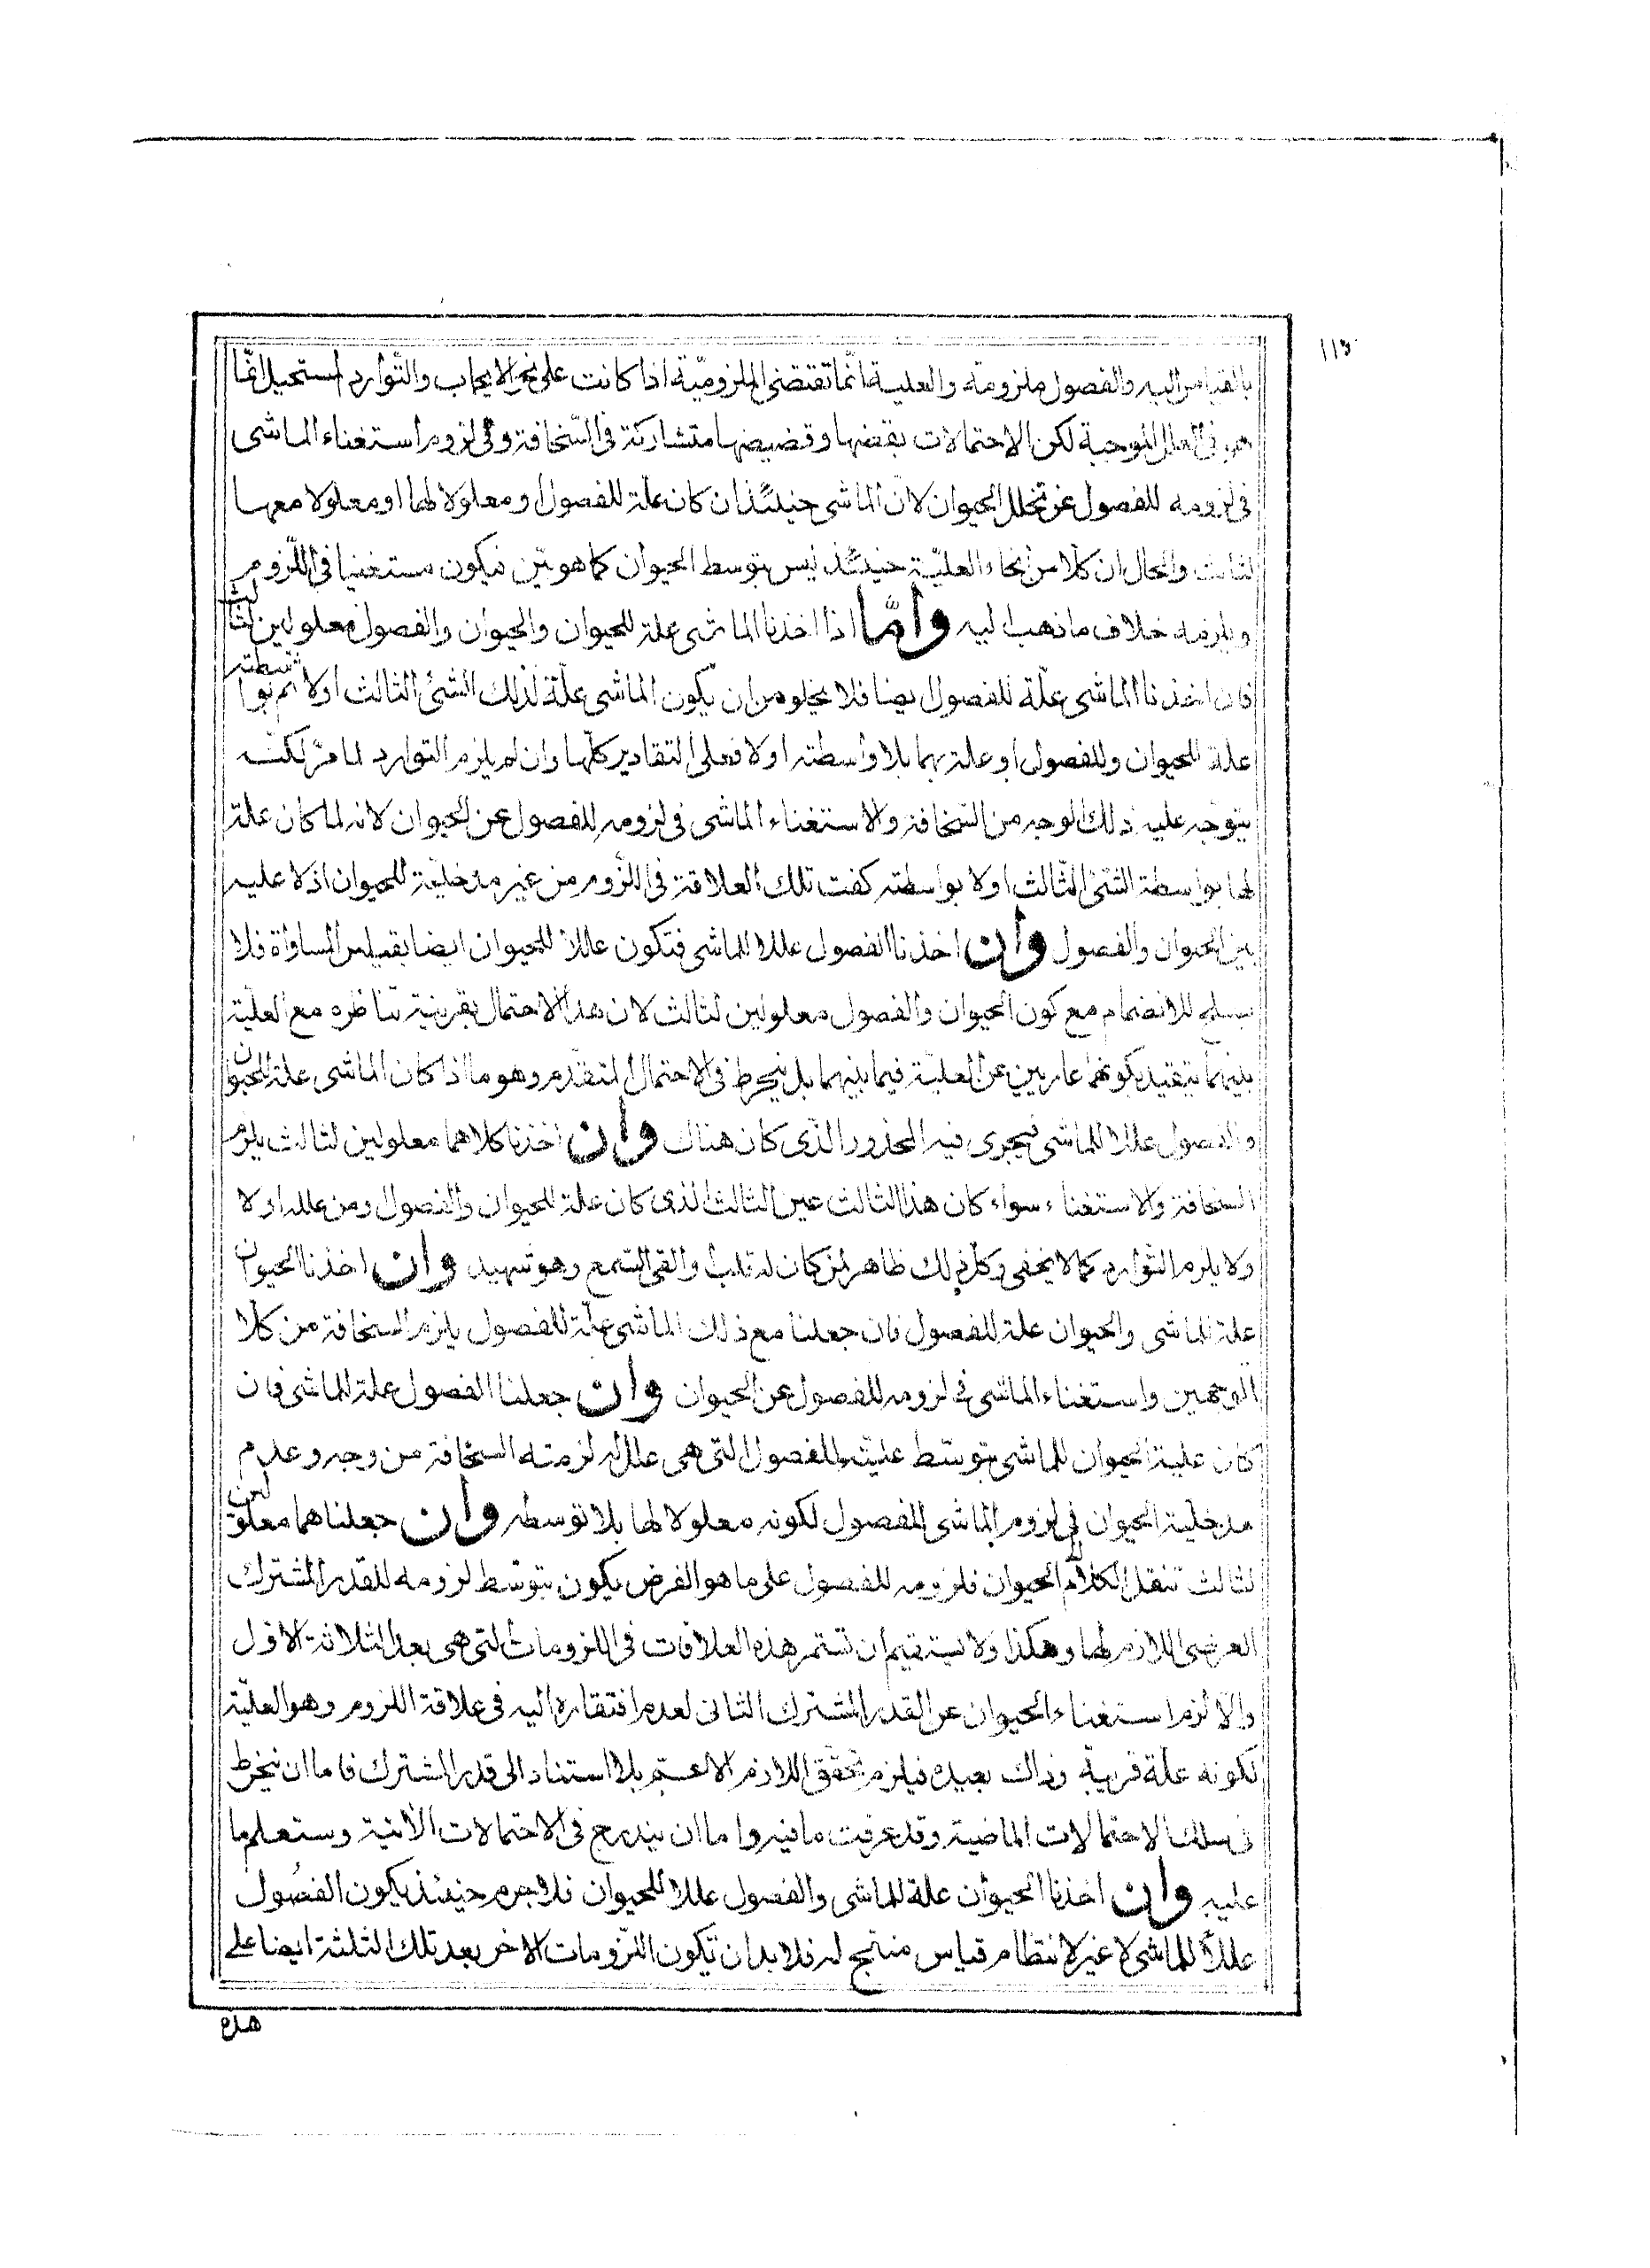 ١١٥
بالقياس اليه والفصول ملزومة والعلية انّما تقتضى الملزوميّة اذا كانت على نحو الايجاب والتّوارد المستحيل انّما
هو فى العلل الموجبة لكن الاحتمالات بقضها وقضيضها متشاركة فى السّخافة وفى لزوم استغناء الماشى
فى لزومه للفصول عن تخلل الحيوان لانّ الماشى حينئذ ان كان علة للفصول او معلولا لها او معلولا معها
لثالث والحال ان كلا من انحاء العليّة حينئذ ليس بتوسط الحيوان كما هو بيّن فيكون مستغنيا فى اللّزوم
ويلزمه خلاف ما ذهب اليه وأمّا اذا اخذنا الماشى علة للحيوان والحيوان والفصول معلولين لثالث
فان اخذنا الماشى علّة للفصول ايضا فلا يخلو من ان يكون الماشى علّة لذلك الشئ الثالث اولا ثم بواسطته
علة للحيوان وللفصول او علة بهما بلا واسطته اولا فعلى التقادير كلّها وان لم يلزم التوارد لما مرّ لكنّه
يتوجّه عليه ذلك الوجه من السّخافة والاستغناء الماشى فى لزومه للفصول عن الحيوان لانه لما كان علة
لها بواسطة الشئ الثّالث اولا بواسطته كفت تلك العلاقة فى اللّزوم من غير مدخليّة للحيوان اذ لا علية
بين الحيوان والفصول وان اخذنا الفصول عللا للماشى فتكون عللا للحيوان ايضا بقياس المساواة فلا
يصلح للانضمام مع كون الحيوان والفصول معلولين لثالث لان هذا الاحتمال بقرينة تناظره مع العليّة
بينهما يتقيد بكونهما عاريين عن العليّة فيما بينهما بل ينخرط فى الاحتمال المتقدم وهو ما اذا كان الماشى علة للحيوان
والفصول عللا للماشى فيجرى فيه المحذور الذى كان هناك وان اخذنا كلاهما معلولين لثالث يلزم
السخافة والاستغناء سواء كان هذا الثالث عين الثالث الذى كان علة للحيوان والفصول ومن علله اولا
ولا يلزم التّوارد كما لا يخفى وكل ذلك ظاهر لمن كان له قلب أو القى السّمع وهو شهيد وان اخذنا الحيوان
علة للماشى والحيوان علة للفصول فان جعلنا مع ذلك الماشى علّة للفصول يلزم السخافة من كلا
الوجهين واستغناء الماشى فى لزومه للفصول عن الحيوان وان جعلنا الفصول علة للماشى فان
كان علية الحيوان للماشى بتوسّط عليته للفصول التى هى علل له لزمته السخافة من وجه وعدم
مدخلية الحيوان فى لزوم الماشى للفصول لكونه معلولا لها بلا توسطه وان جعلناهما معلولين
لثالث تنقل الكلام الى الحيوان فلزومه للفصول على ما هو الفرض يكون بتوسّط لزومه للقدر المشترك
العرضى اللازم لها وهكذا ولا يستقيم ان تستمر هذه العلاقات فى اللزومات التى هى بعد الثلاثة الاول
والّا لزم استغناء الحيوان عن القدر المشترك الثانى لعدم افتقاره اليه فى علاقة اللزوم وهو العليّة
لكونه علّة قريبة وذاك بعيدة فيلزم تحقّق اللازم الاعم بلا استناد الى قدر المشترك فاما ان ينخرط
فى سلك الاحتمالات الماضية وقد عرفت ما فيه واما ان يندرج فى الاحتمالات الآتية وستعلم ما
عليه وان اخذنا الحيوان علة للماشى والفصول عللا للحيوان فلا جرم حينئذ يكون الفصول
عللاً للماشى لا غير لانتظام قياس منتج له فلا بد ان تكون اللّزومات الاخر بعد تلك الثلثة ايضا على
هذه